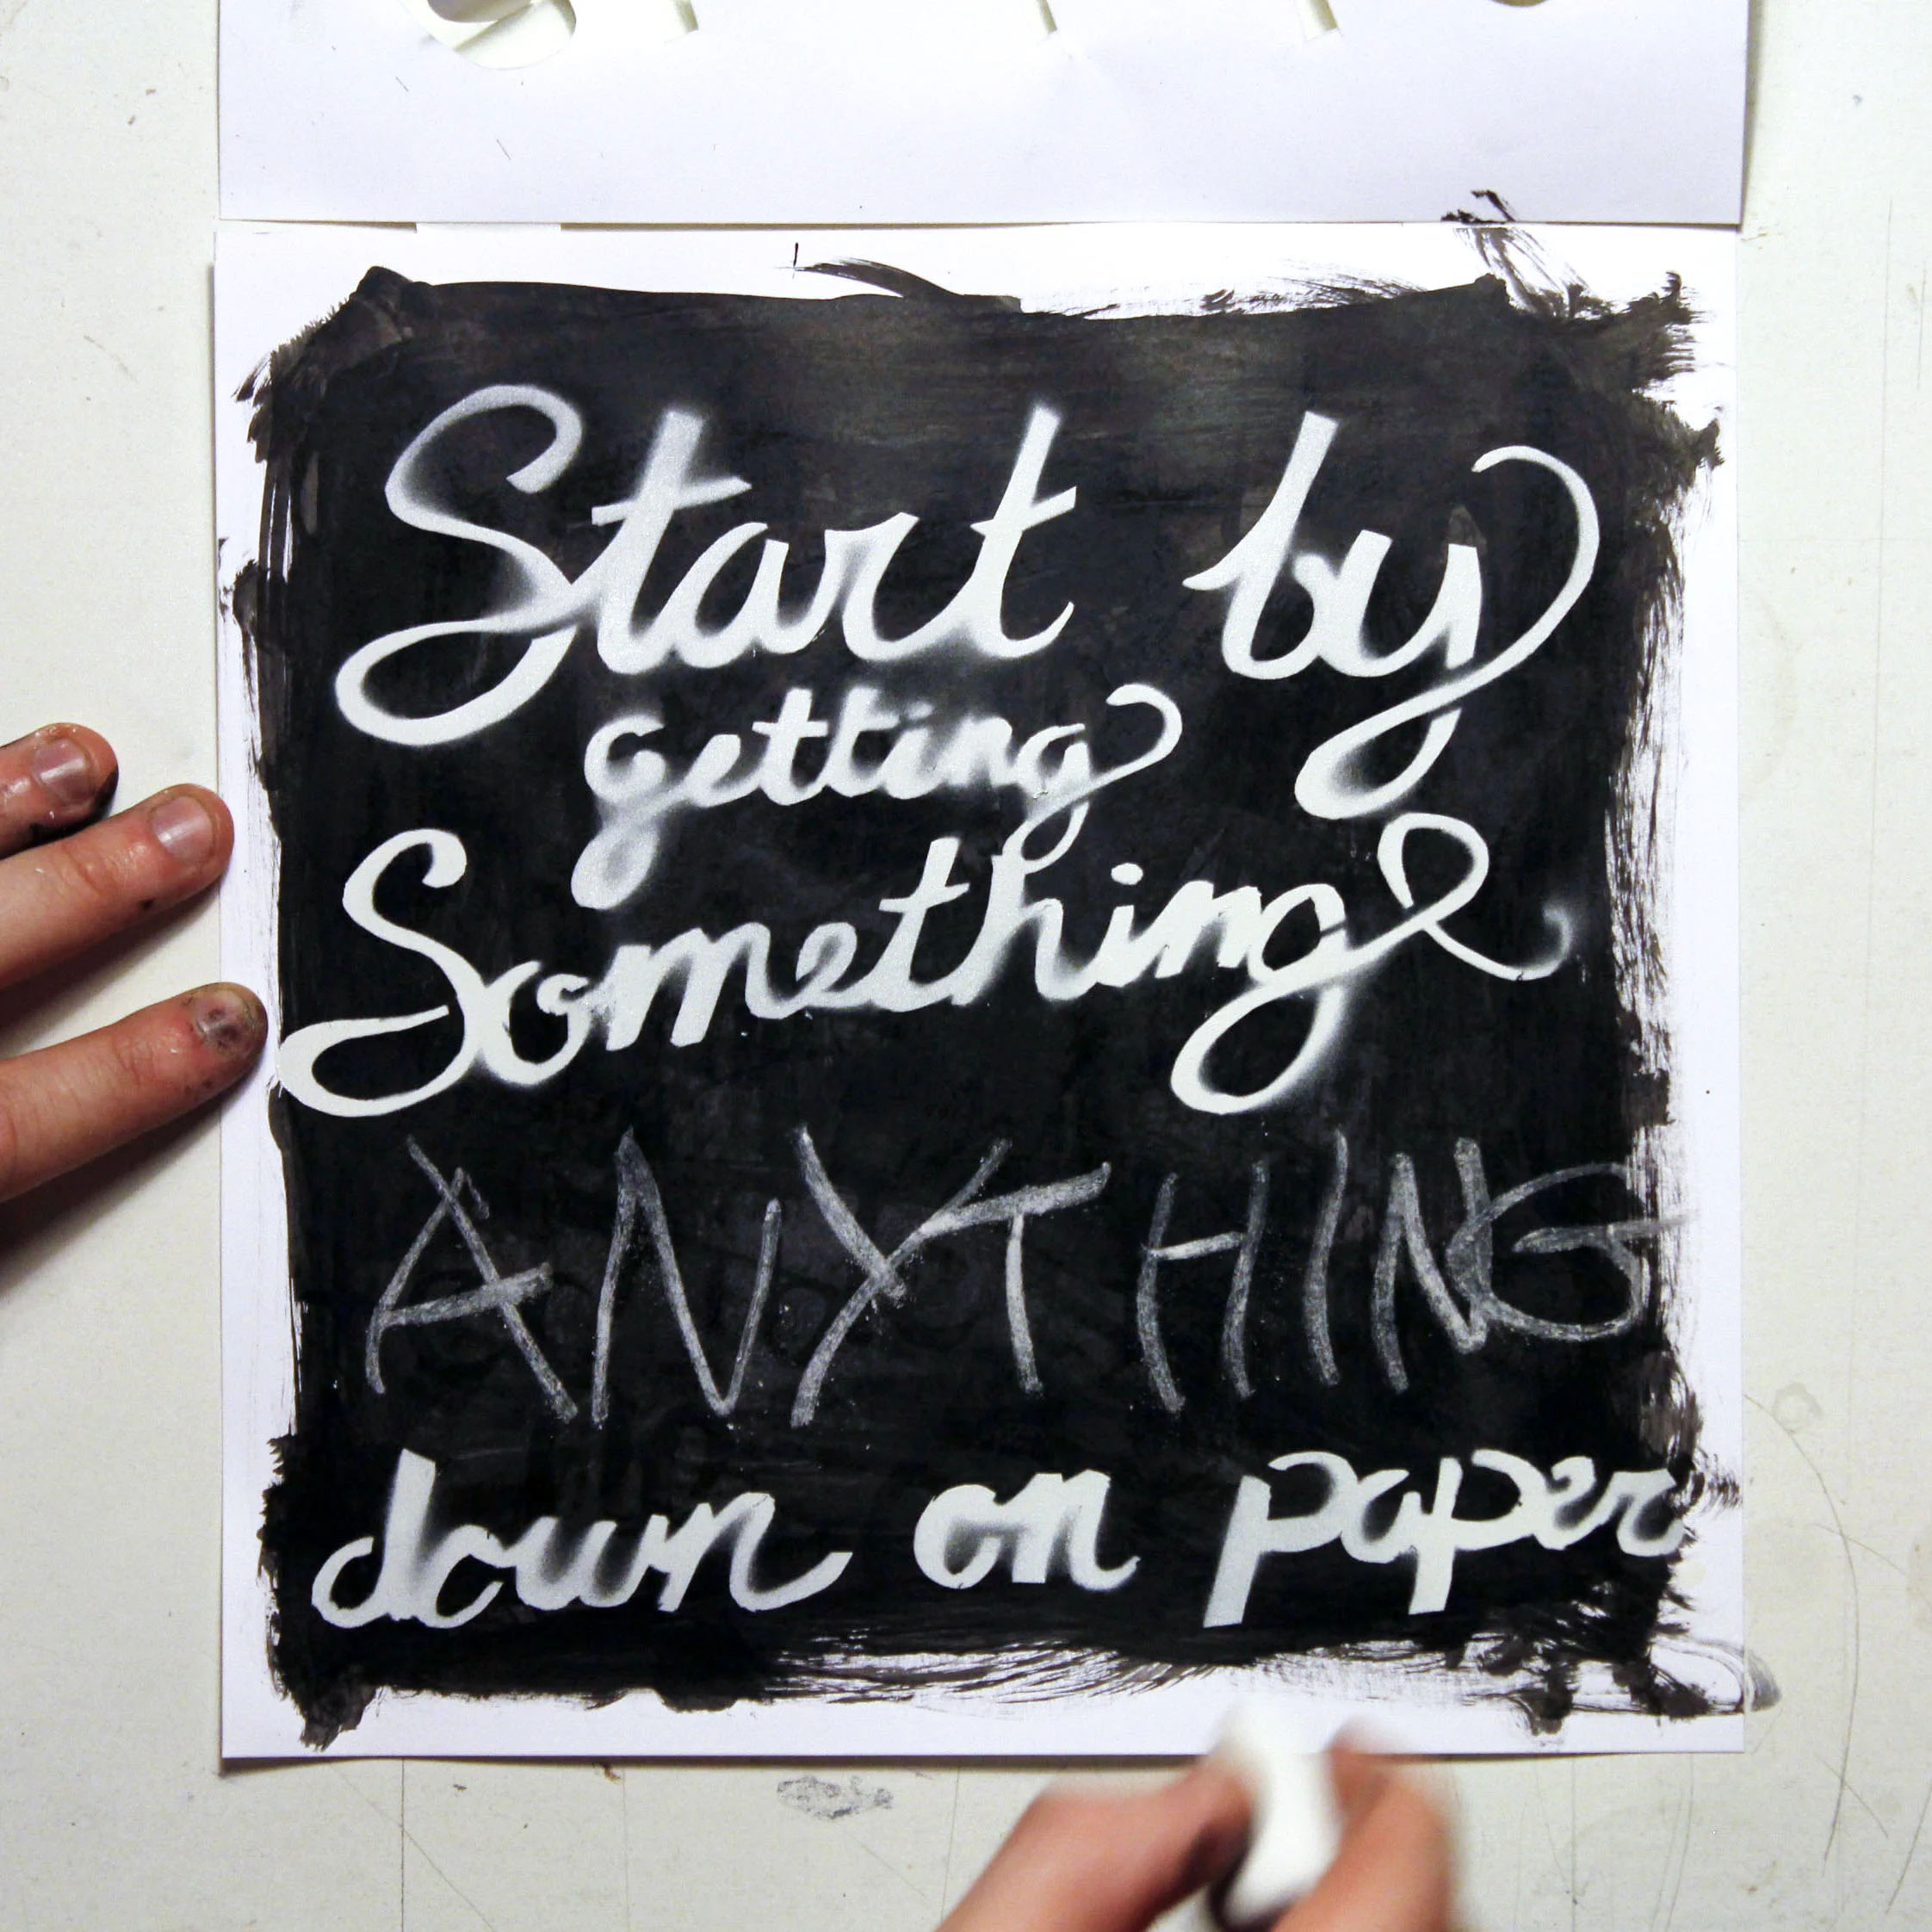 Start by
getting
Something
ANYTHING
down on paper